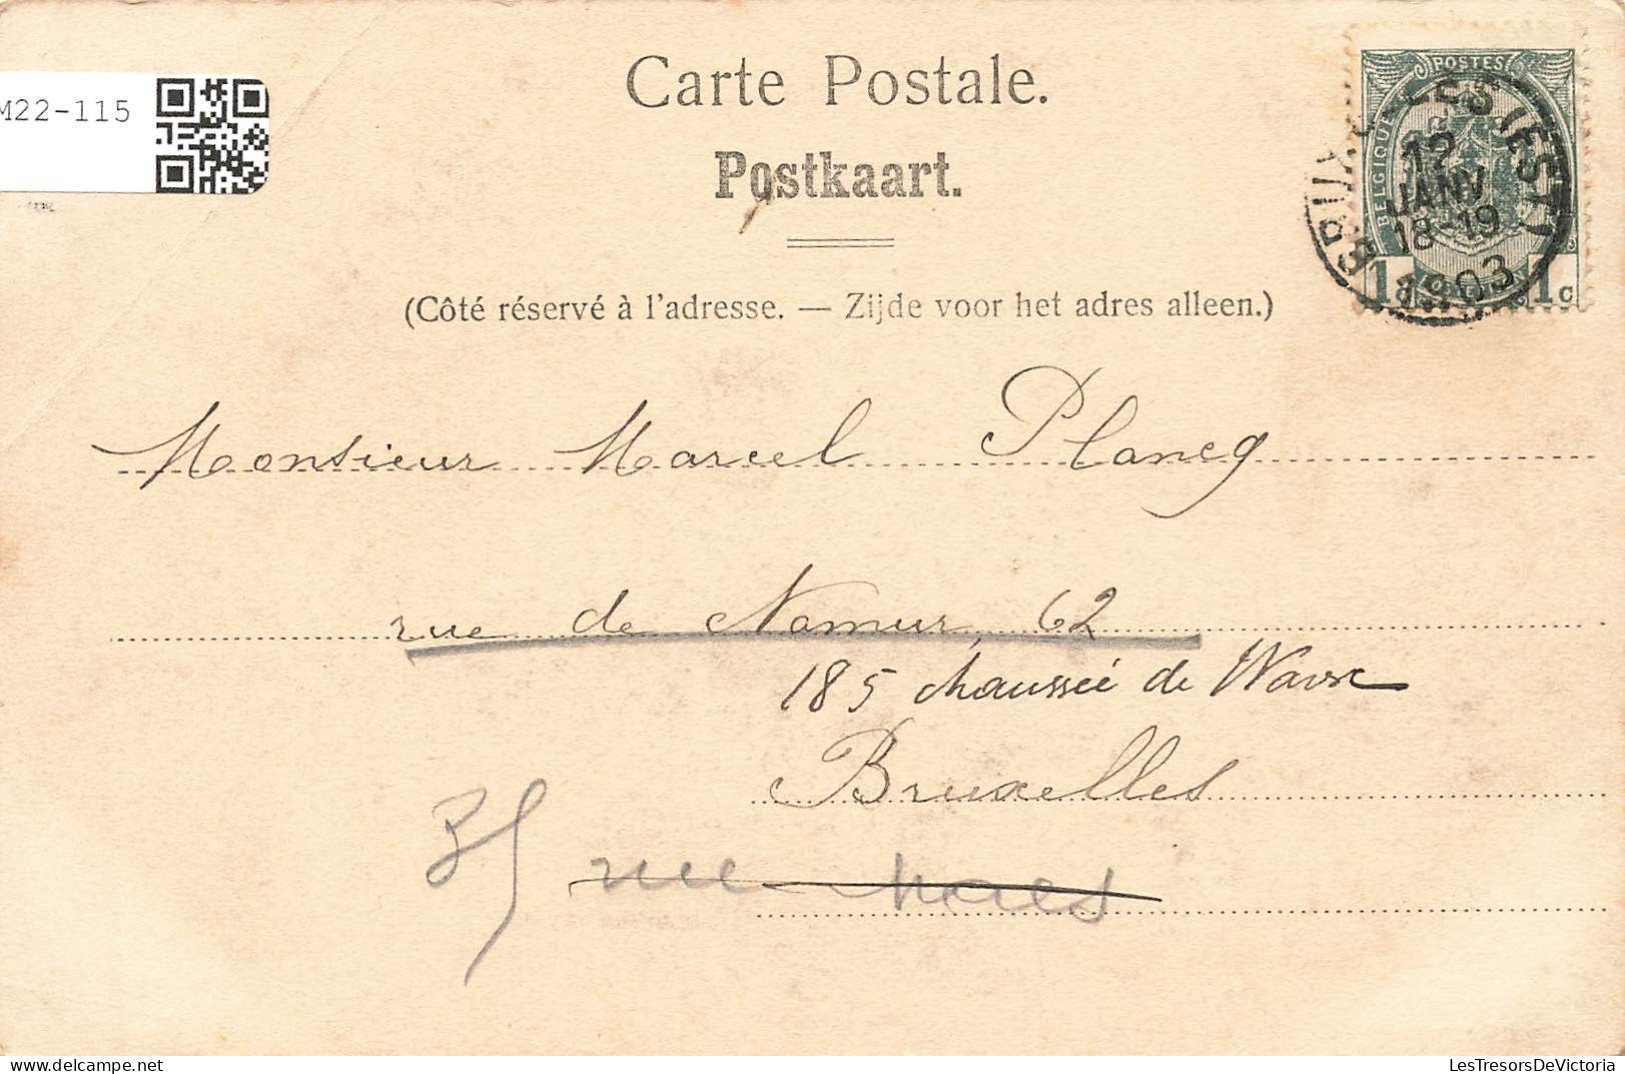 M22-115
Carte Postale.
Postkaart.
(Côté réservé à l'adresse. — Zijde voor het adres alleen.)
POSTES
BELGIQUE
BRUXELLES (EST)
12
JANV
18-19
1903
1c
Monsieur Marcel Plancq
rue de Namur, 62
185 chaussée de Wavre
Bruxelles
35 rue Maes
LesTresorsDeVictoria.com